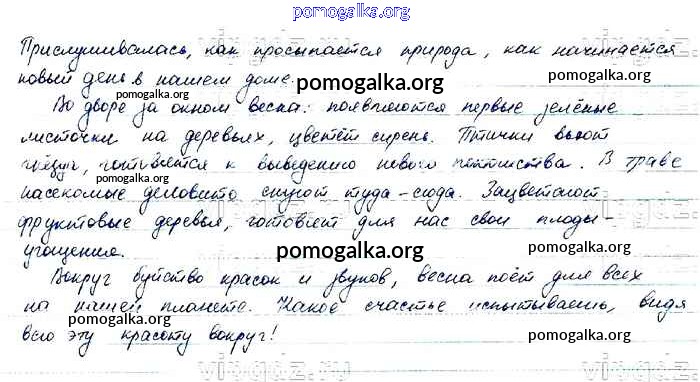 pomogalka.org
Прислушивалась, как просыпается природа, как начинается
новый день в нашем доме. pomogalka.org pomogalka.org
Во дворе за окном весна: появляются первые зелёные
листочки на деревьях, цветёт сирень. Птички вьют
гнёзда, готовятся к выведению нового потомства. В траве
pomogalka.org
насекомые деловито снуют туда-сюда. Зацветают
фруктовые деревья, готовят для нас свои плоды-
угощения. pomogalka.org pomogalka.org
Вокруг буйство красок и звуков, весна поёт для всех
на нашей планете. Какое счастье испытываешь, видя
pomogalka.org
всю эту красоту вокруг! pomogalka.org